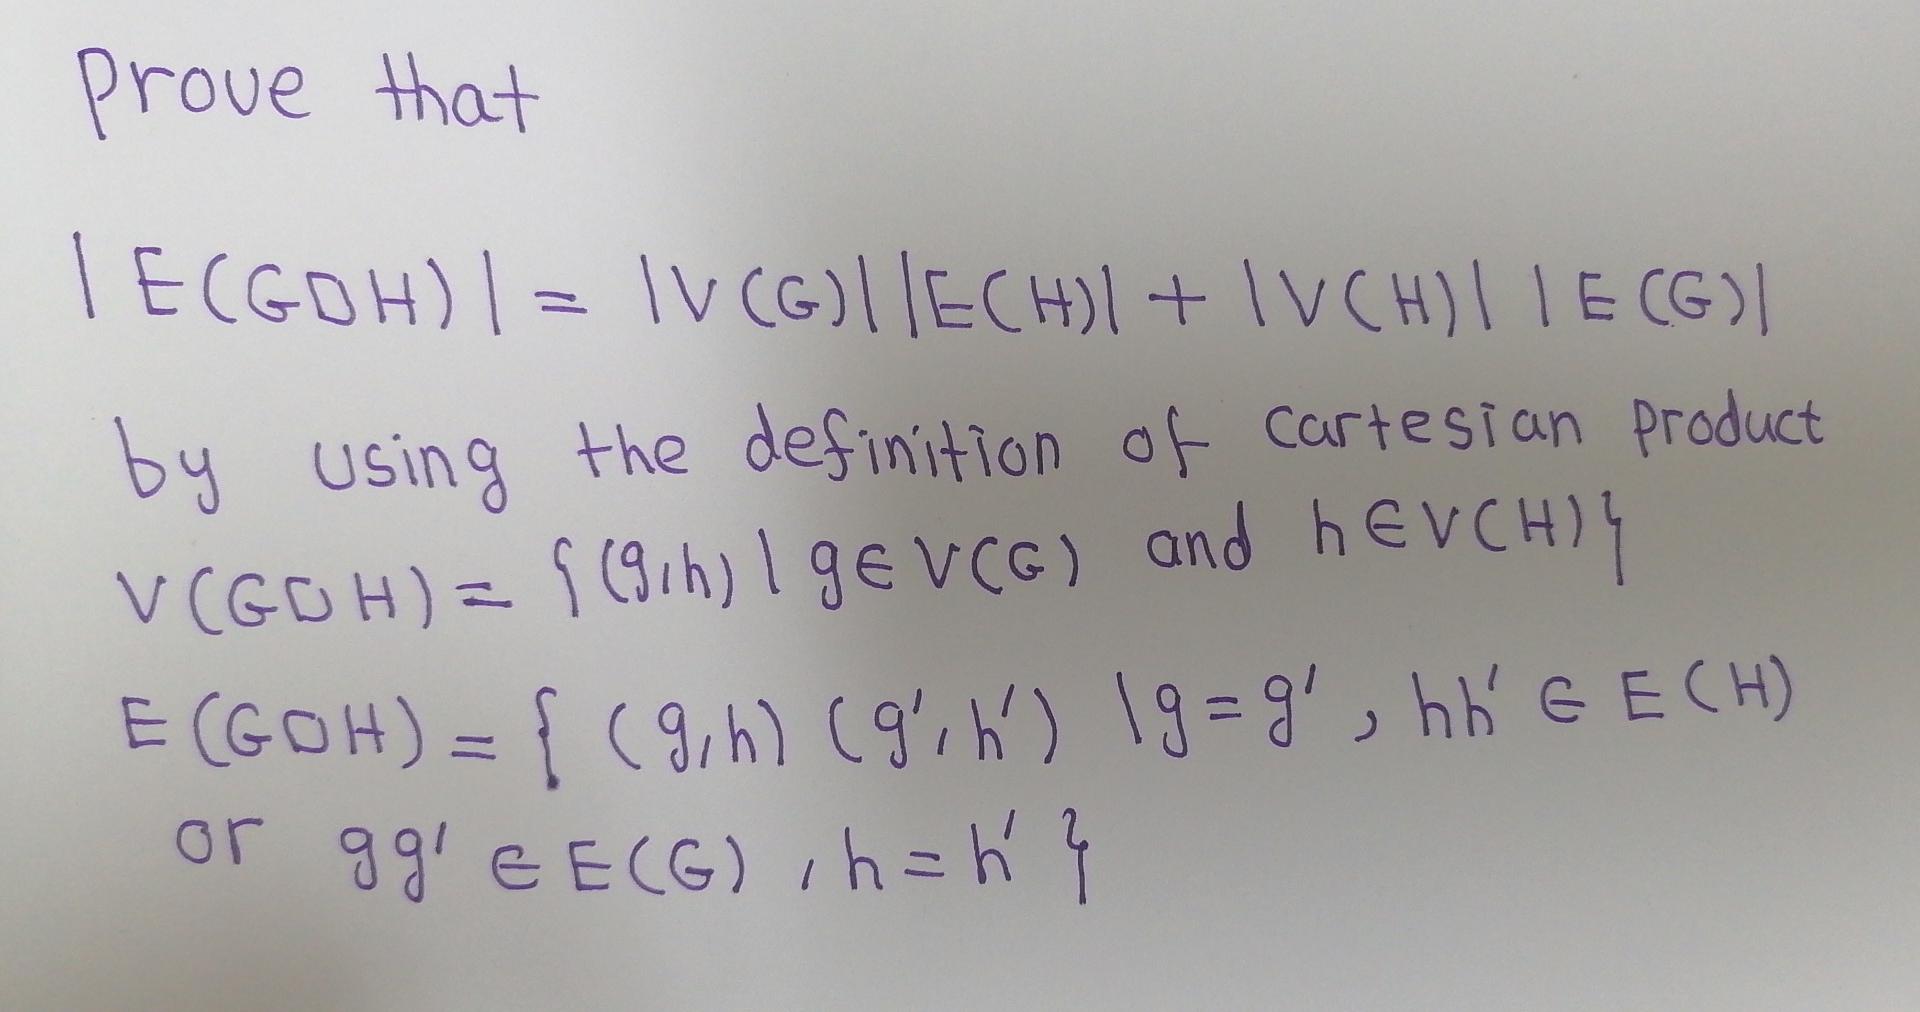 Prove that
|E(G□H)| = |V(G)||E(H)| + |V(H)||E(G)|
by using the definition of cartesian product
V(G□H) = {(g,h) | g∈V(G) and h∈V(H)}
E(G□H) = {(g,h)(g',h') | g=g', hh'∈E(H)
or gg'∈E(G), h=h'}